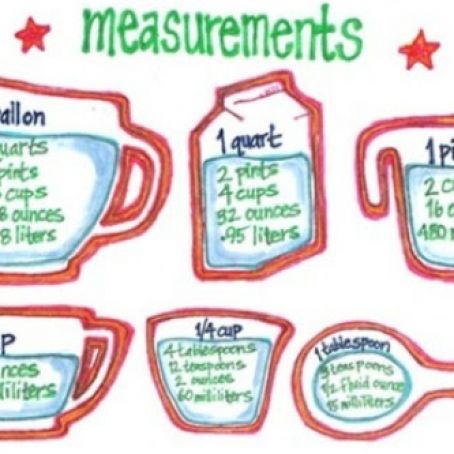 measurements
allon
quarts
pints
cups
8 ounces
8 liters
1 quart
2 pints
4 cups
32 ounces
.95 liters
1 pi
2 c
16 o
480 m
P
nces
liliters
1/4 cup
4 tablespoons
12 teaspoons
2 ounces
60 milliliters
1 tablespoon
3 teaspoons
1/2 fluid ounce
15 milliliters